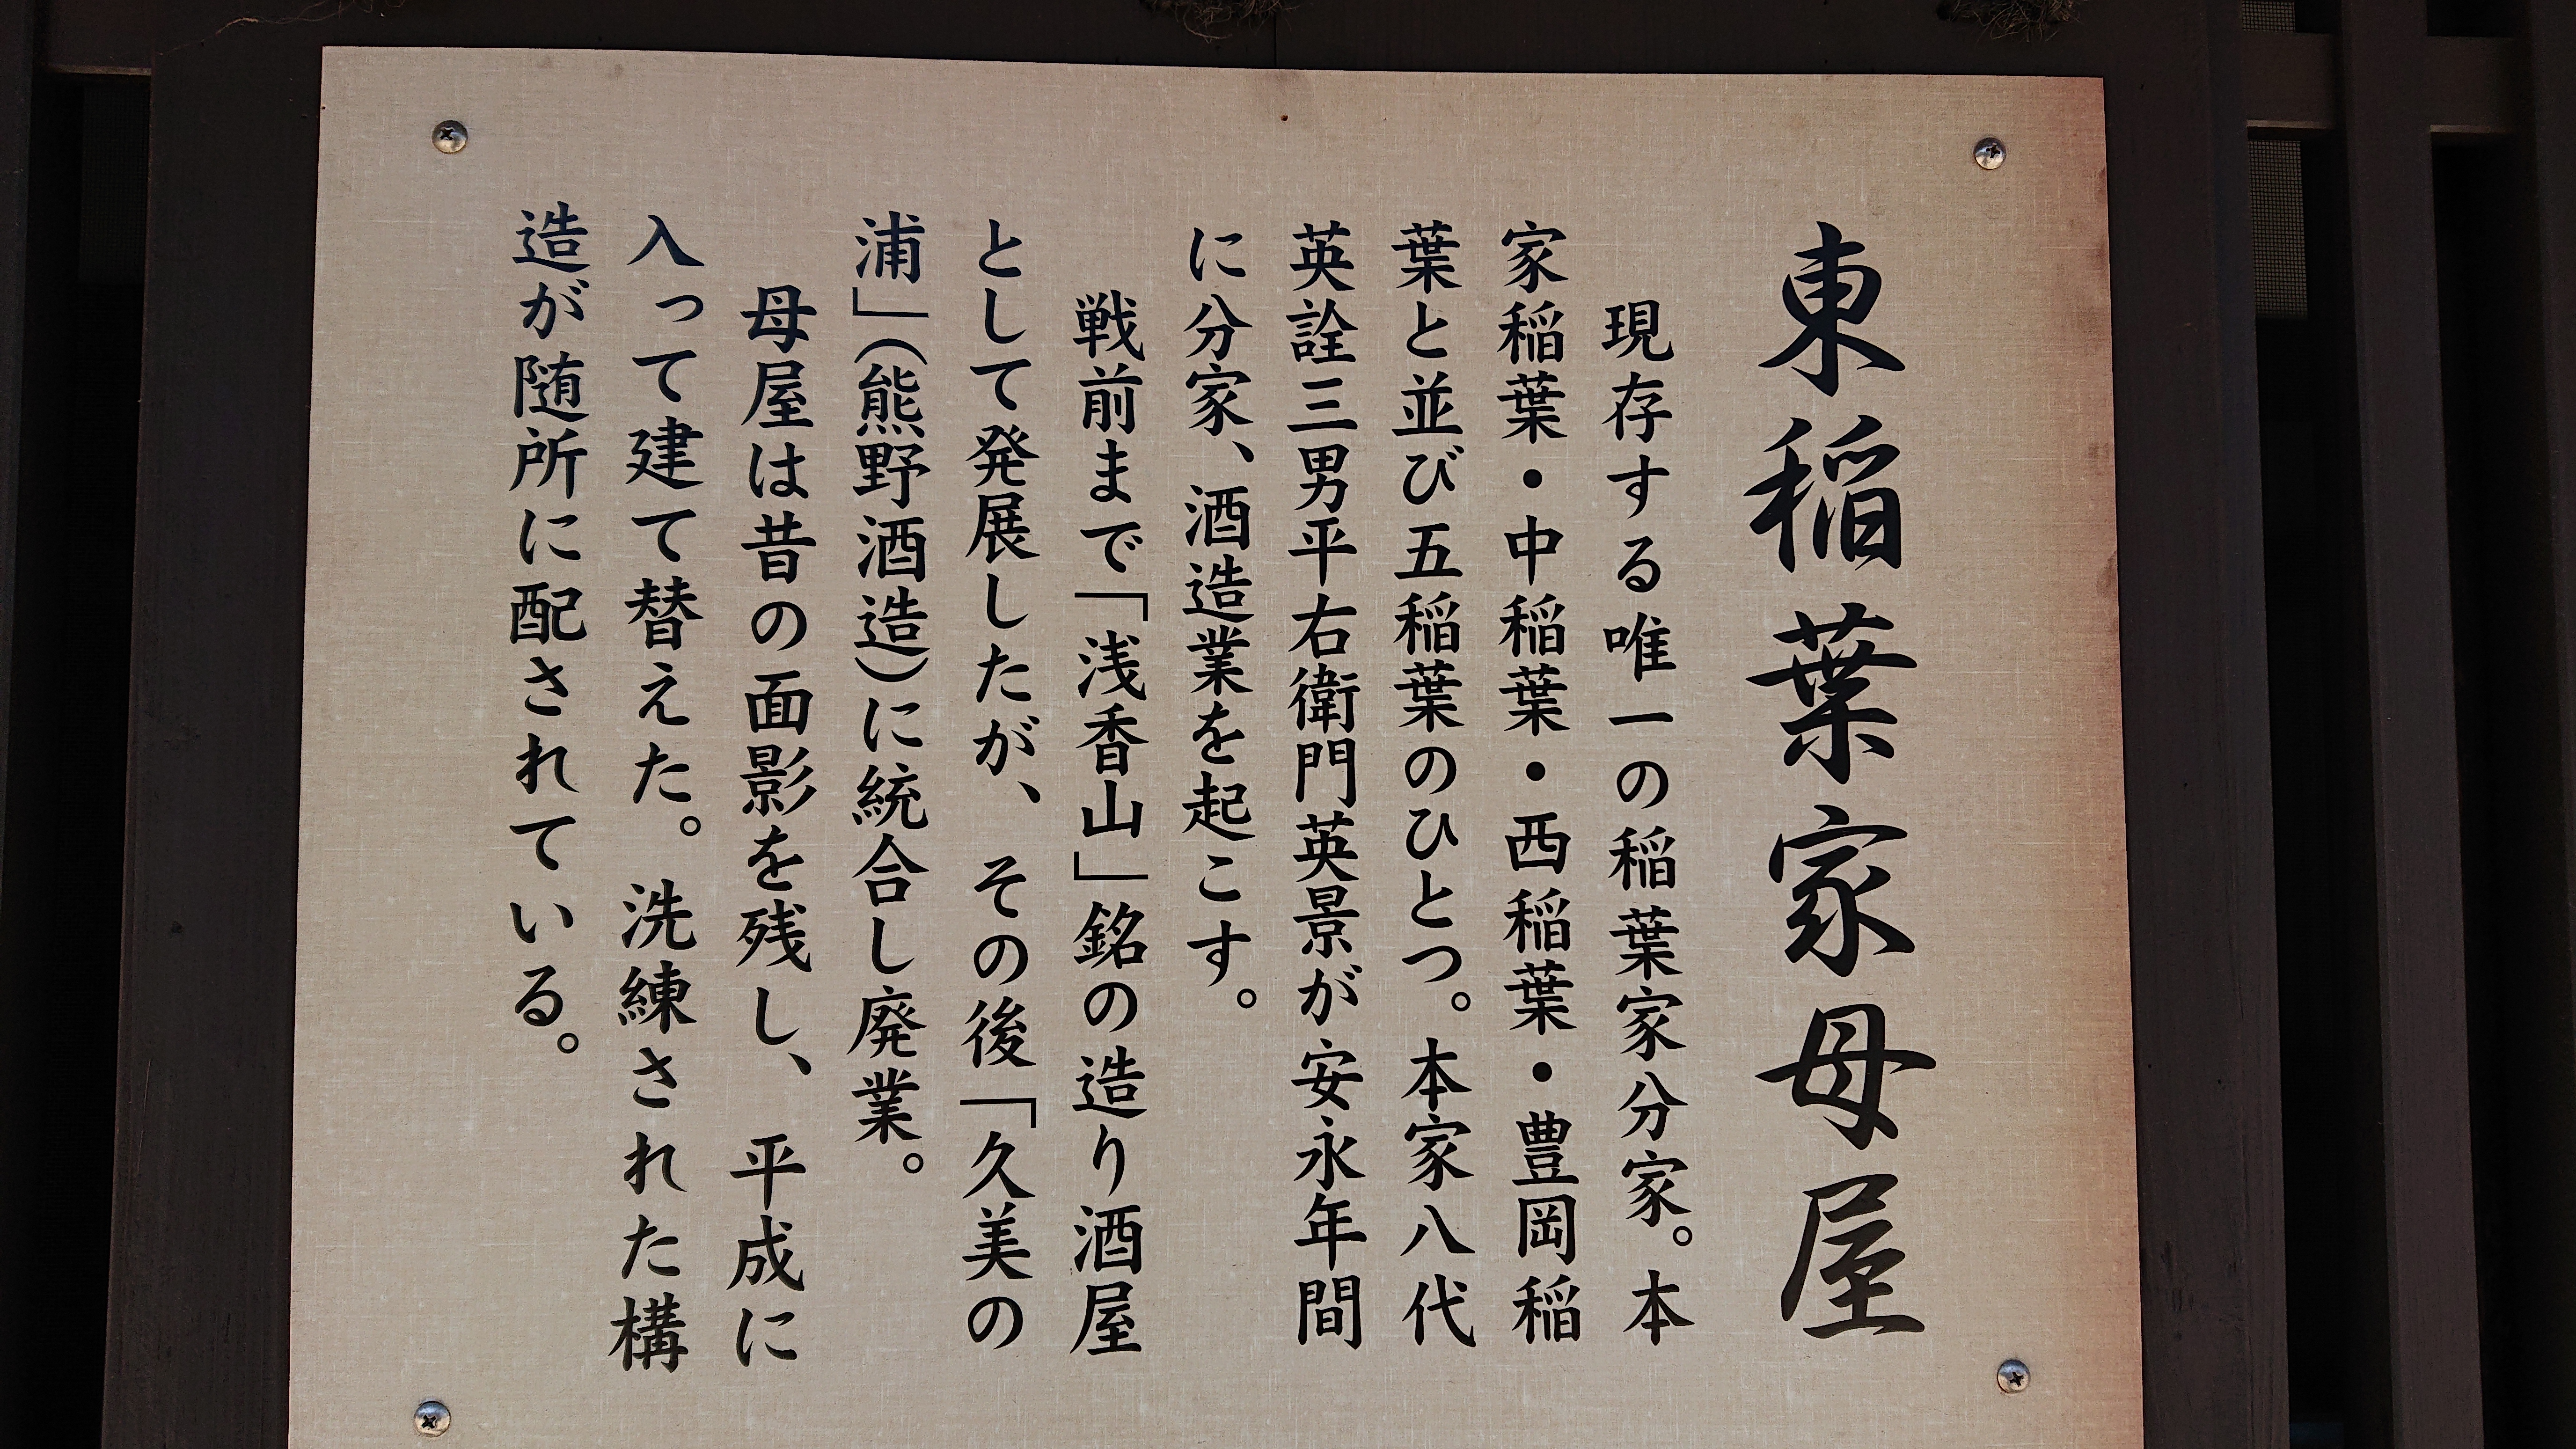 東稲葉家母屋
現存する唯一の稲葉家分家。本
家稲葉・中稲葉・西稲葉・豊岡稲
葉と並び五稲葉のひとつ。本家八代
英詮三男平右衛門英景が安永年間
に分家、酒造業を起こす。
戦前まで「浅香山」銘の造り酒屋
として発展したが、その後「久美の
浦」(熊野酒造)に統合し廃業。
母屋は昔の面影を残し、平成に
入って建て替えた。洗練された構
造が随所に配されている。